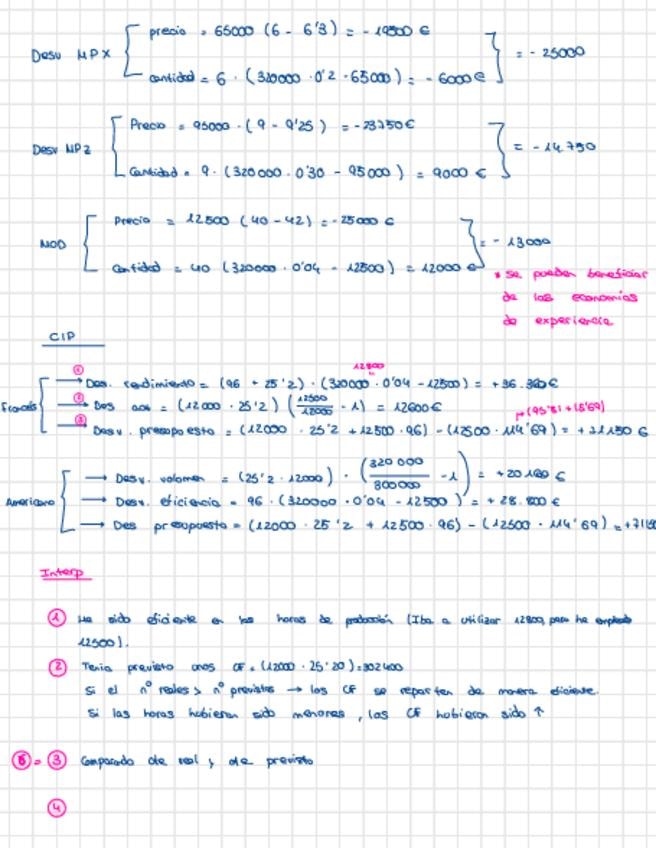 precio = 65000 (6 - 6'3) = - 19500 €
Desv MPX = - 25000
cantidad = 6 · (320000 · 0'2 - 65000) = - 6000 €
Precio = 95000 · (9 - 9'25) = - 23750 €
Desv MPZ = - 14750
Cantidad = 9 · (320000 · 0'30 - 95000) = 9000 €
Precio = 12500 (40 - 42) = - 25000 €
MOD = - 13000
Cantidad = 40 (320000 · 0'04 - 12500) = 12000 €
* se pueden beneficiar
de las economías
de experiencia
CIP
① 12800
→ Des. rendimiento = (96 + 25'2) · (320000 · 0'04 - 12500) = + 36.360 €
Francés ② → Des = (12000 · 25'2) (12500/12000 - 1) = 12600 €
(95'81 + 18'69)
③ → Desv. presupuesto = (12000 · 25'2 + 12500 · 96) - (12500 · 114'69) =
→ Desv. volumen = (25'2 · 12000) · (320 000 / 300000 - 1) = + 20160 €
Americano → Desv. eficiencia = 96 · (320000 · 0'04 - 12500) = + 28.800 €
→ Des presupuesto = (12000 · 25'2 + 12500 · 96) - (12500 · 114'69) =
Interp
① Ha sido eficiente en las horas de producción (Iba a utilizar 12800, pero ha empleado
12500).
② Tenía previsto unos CF = (12000 · 25'20) = 302400
Si el nº reales > nº previstos → los CF se reparten de manera eficiente.
Si las horas hubieran sido menores, los CF hubieran sido ↑
= ③ Comparado de real y de previsto
④